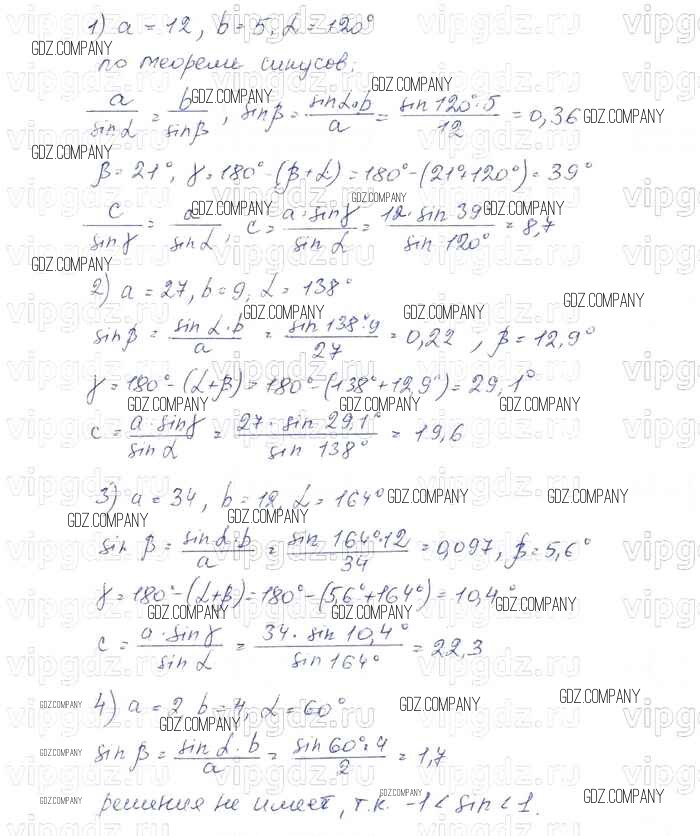 1) a = 12, b = 5, α = 120°
по теореме синусов:
a/sinα = b/sinβ, sinβ = sinα·b/a = sin120°·5/12 = 0,36
β = 21°, γ = 180° - (β+α) = 180° - (21°+120°) = 39°
c/sinγ = a/sinα, c = a·sinγ/sinα = 12·sin39°/sin120° = 8,7
2) a = 27, b = 9, α = 138°
sinβ = sinα·b/a = sin138°·9/27 = 0,22, β = 12,9°
γ = 180° - (α+β) = 180° - (138°+12,9°) = 29,1°
c = a·sinγ/sinα = 27·sin29,1°/sin138° = 19,6
3) a = 34, b = 12, α = 164°
sinβ = sinα·b/a = sin164°·12/34 = 0,097, β = 5,6°
γ = 180° - (α+β) = 180° - (5,6°+164°) = 10,4°
c = a·sinγ/sinα = 34·sin10,4°/sin164° = 22,3
4) a = 2, b = 4, α = 60°
sinβ = sinα·b/a = sin60°·4/2 = 1,7
решения не имеет, т.к. -1 < sin < 1.
GDZ.COMPANY
vipgdz.ru